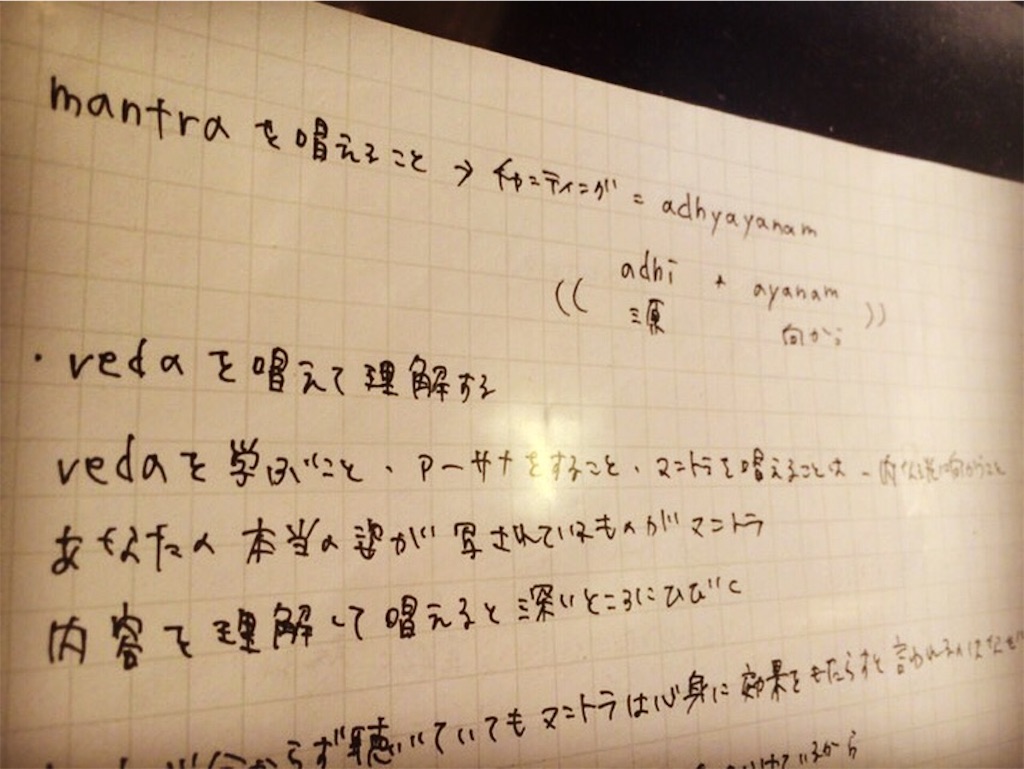 mantra を唱えること → チャンティング = adhyayanam
(( adhi + ayanam ))
源 向かう
・veda を唱えて理解する
veda を学ぶこと、アーサナをすること、マントラを唱えることは
あなたの本当の姿が写されているものがマントラ
内容を理解して唱えると深いところにひびく
分からず聴いていてもマントラは心身に効果をもたらすと言われるのはなぜ
いるから